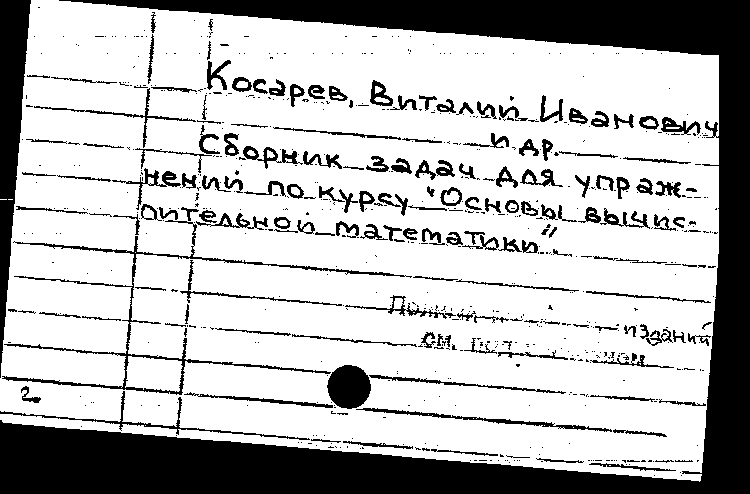 Косарев, Виталий Иванович
и др.
Сборник задач для упраж-
нений по курсу "Основы вычис-
лительной математики".
Полный изданий
см. под
2.